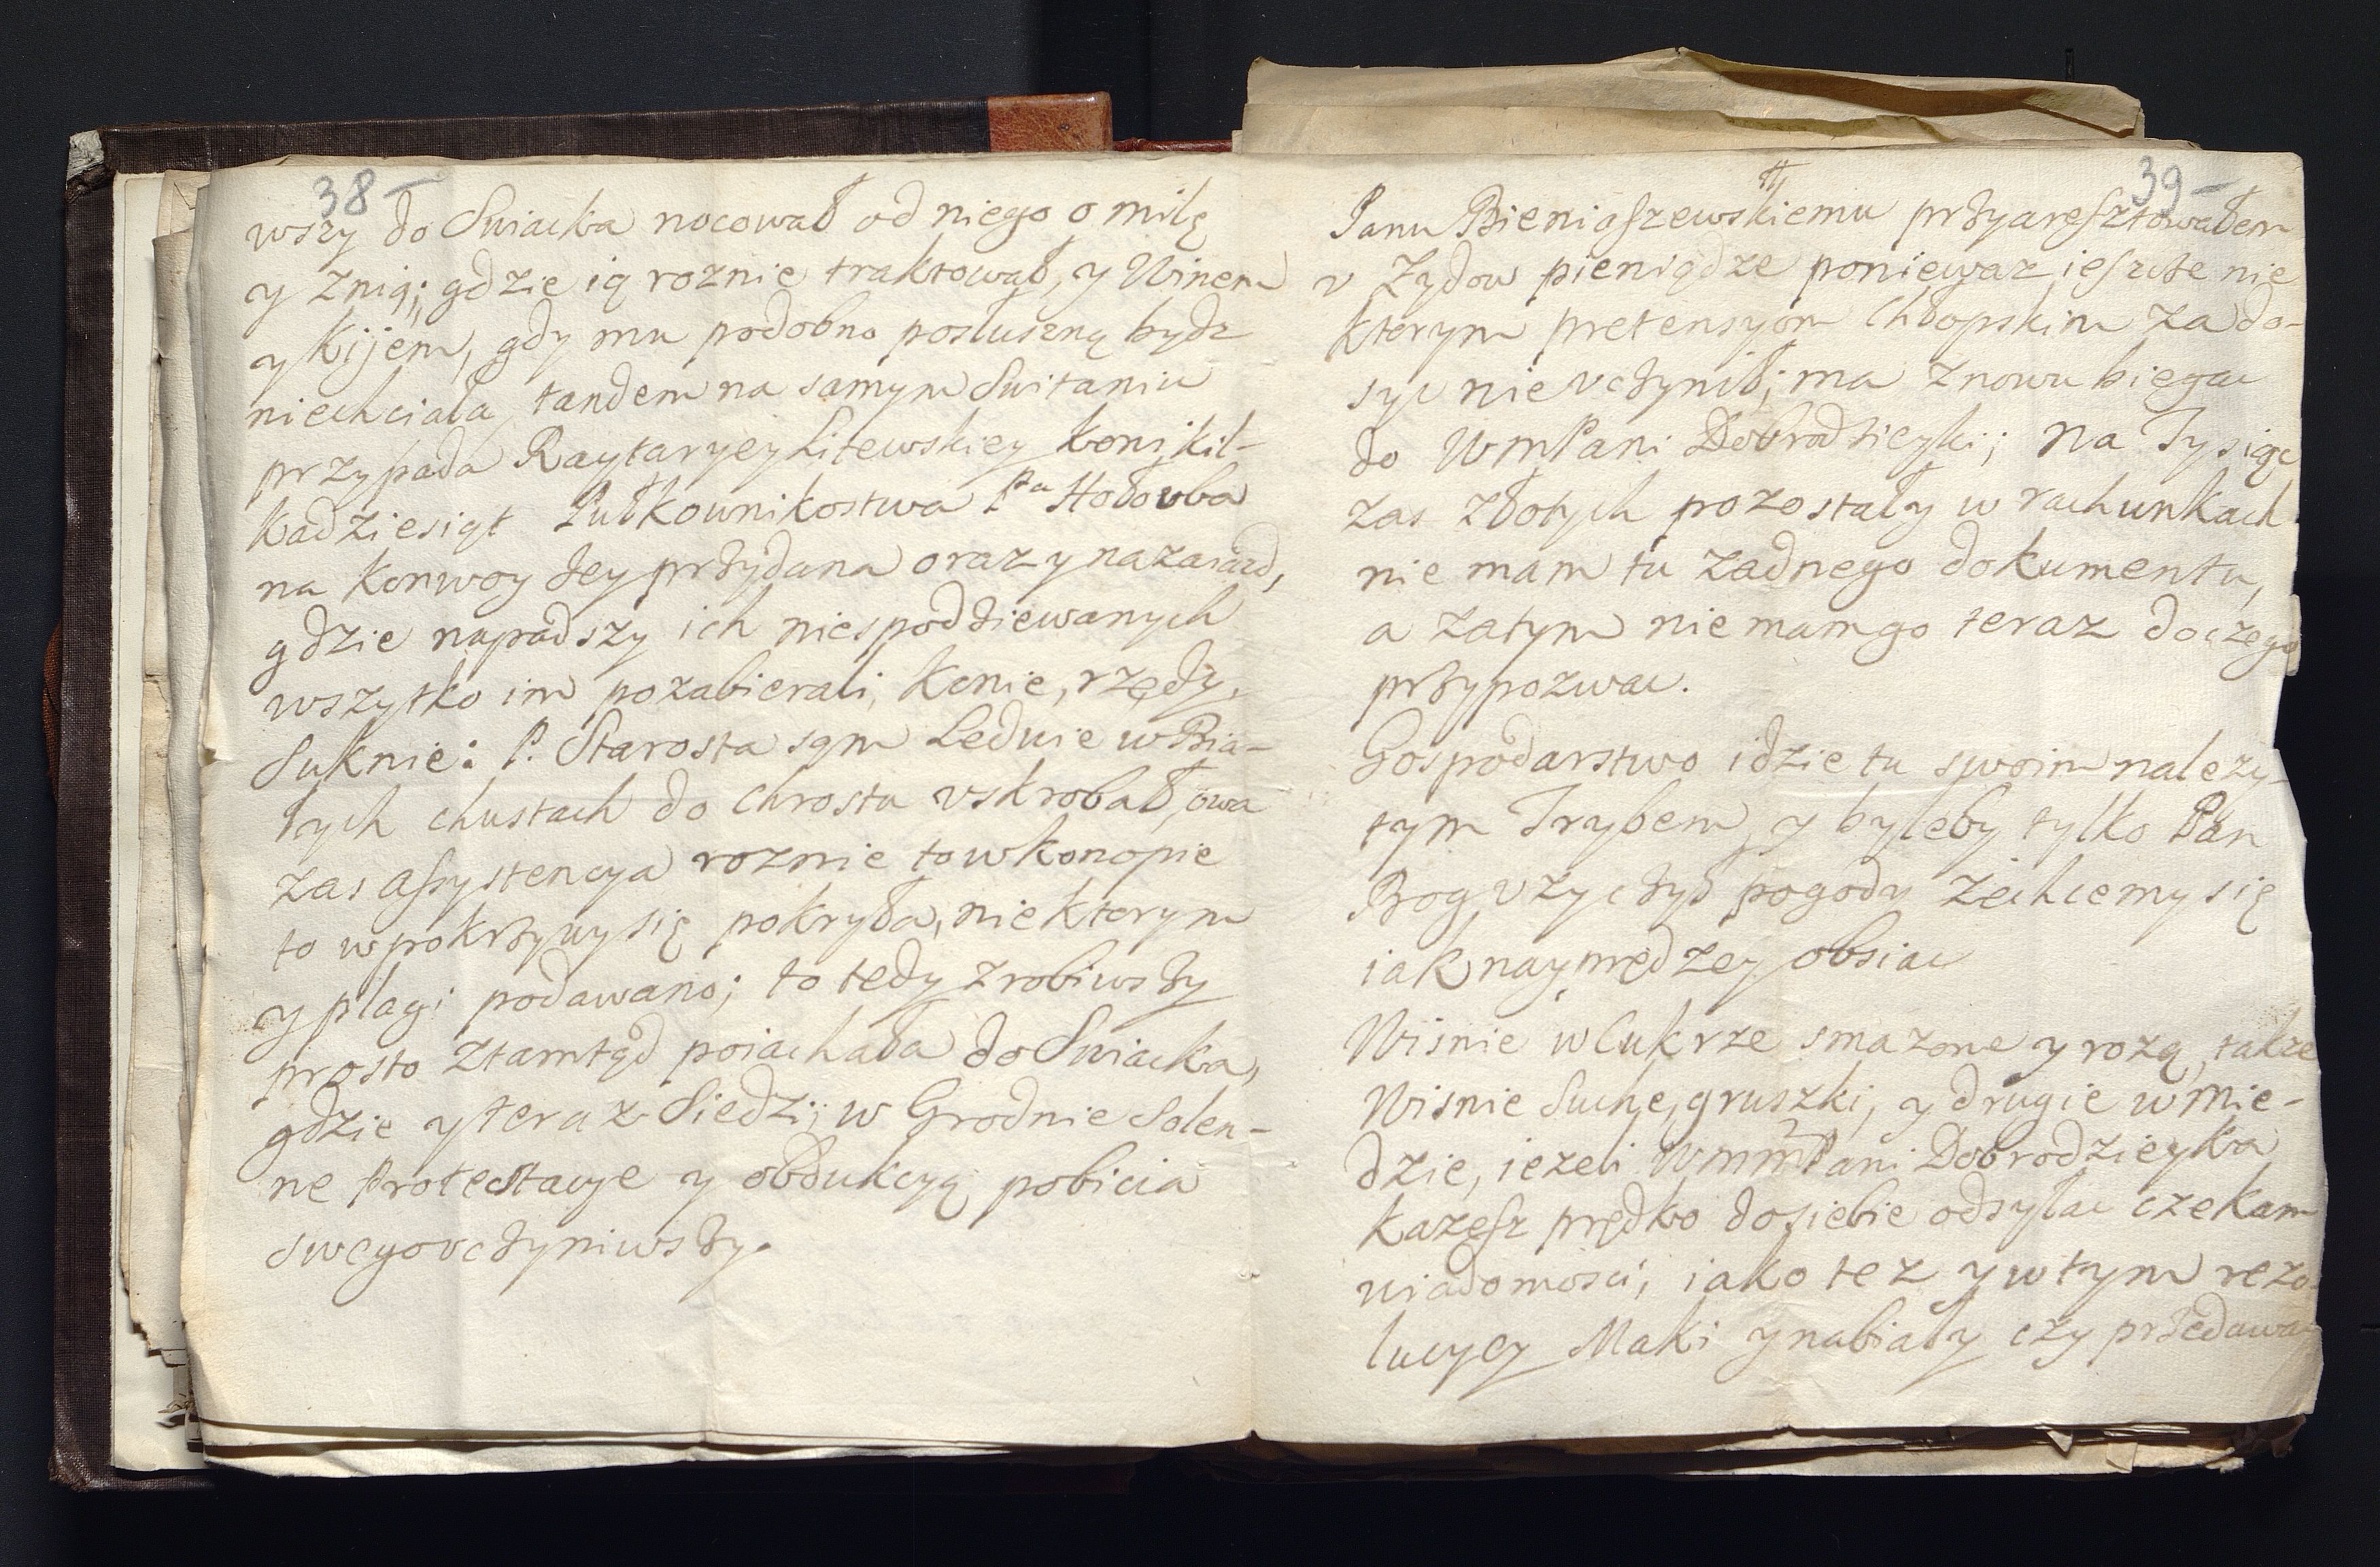 38
wszy do Swiacka nocował od niego o milę
y znią; gdzie ią roznie traktował, y Winem
y Kijem, gdy mu podobno posłuszną bydz
niechciała, tandem na samym Switaniu
przypada Raytaryey Litewskiey koni kil-
kadziesiąt Pułkownikostwa Pta Hołowba
na konwoy Jey przydana oraz y nazaiazd,
gdzie napadszy ich niespodziewanych
wszytko im pozabierali, Konie, rzędy,
Suknie: P. Starosta sąm Ledwie w Bia-
łych chustach do Chrostu vskrobał, owa
zas assystencya roznie to wkonopie
to wpokrzywy się pokryła, niektorym
y plagi podawano; to tedy zrobiwszy
prosto ztamtąd poiachała do Swiacka,
gdzie y teraz Siedzi; w Grodnie Solen-
ne Protestacye y obdukcyą pobicia
swego vczyniwszy.
39
Panu Bieniaszewskiemu przyaresztowałem
v Zydow pieniądze poniewaz ieszcze nie
ktorym pretensyom Chłopskim za do-
syc nie vczynił; ma znowu biegac
do WmPani Dobrodzieyki; Na Tysiąc
zas złotych pozostały w rachunkach
nie mam tu zadnego dokumentu,
a zatym nie mam go teraz do czego
przypozwac.
Gospodarstwo idzie tu swoim nalezy-
tym Trybem, y byleby tylko Pan
Bog vzyczył pogody zechcemy się
iak nayprędzey obsiac
Wisnie w Cukrze smazone y rozą, takze
Wisnie Suche, gruszki, y drugie w mie-
dzie, iezeli WmmPani Dobrodzieyka
kazesz prędko dosiebie odsyłac czekam
wiadomosci, iako tez y wtym rezo-
lucyey Maki y nabiały czy przedawa